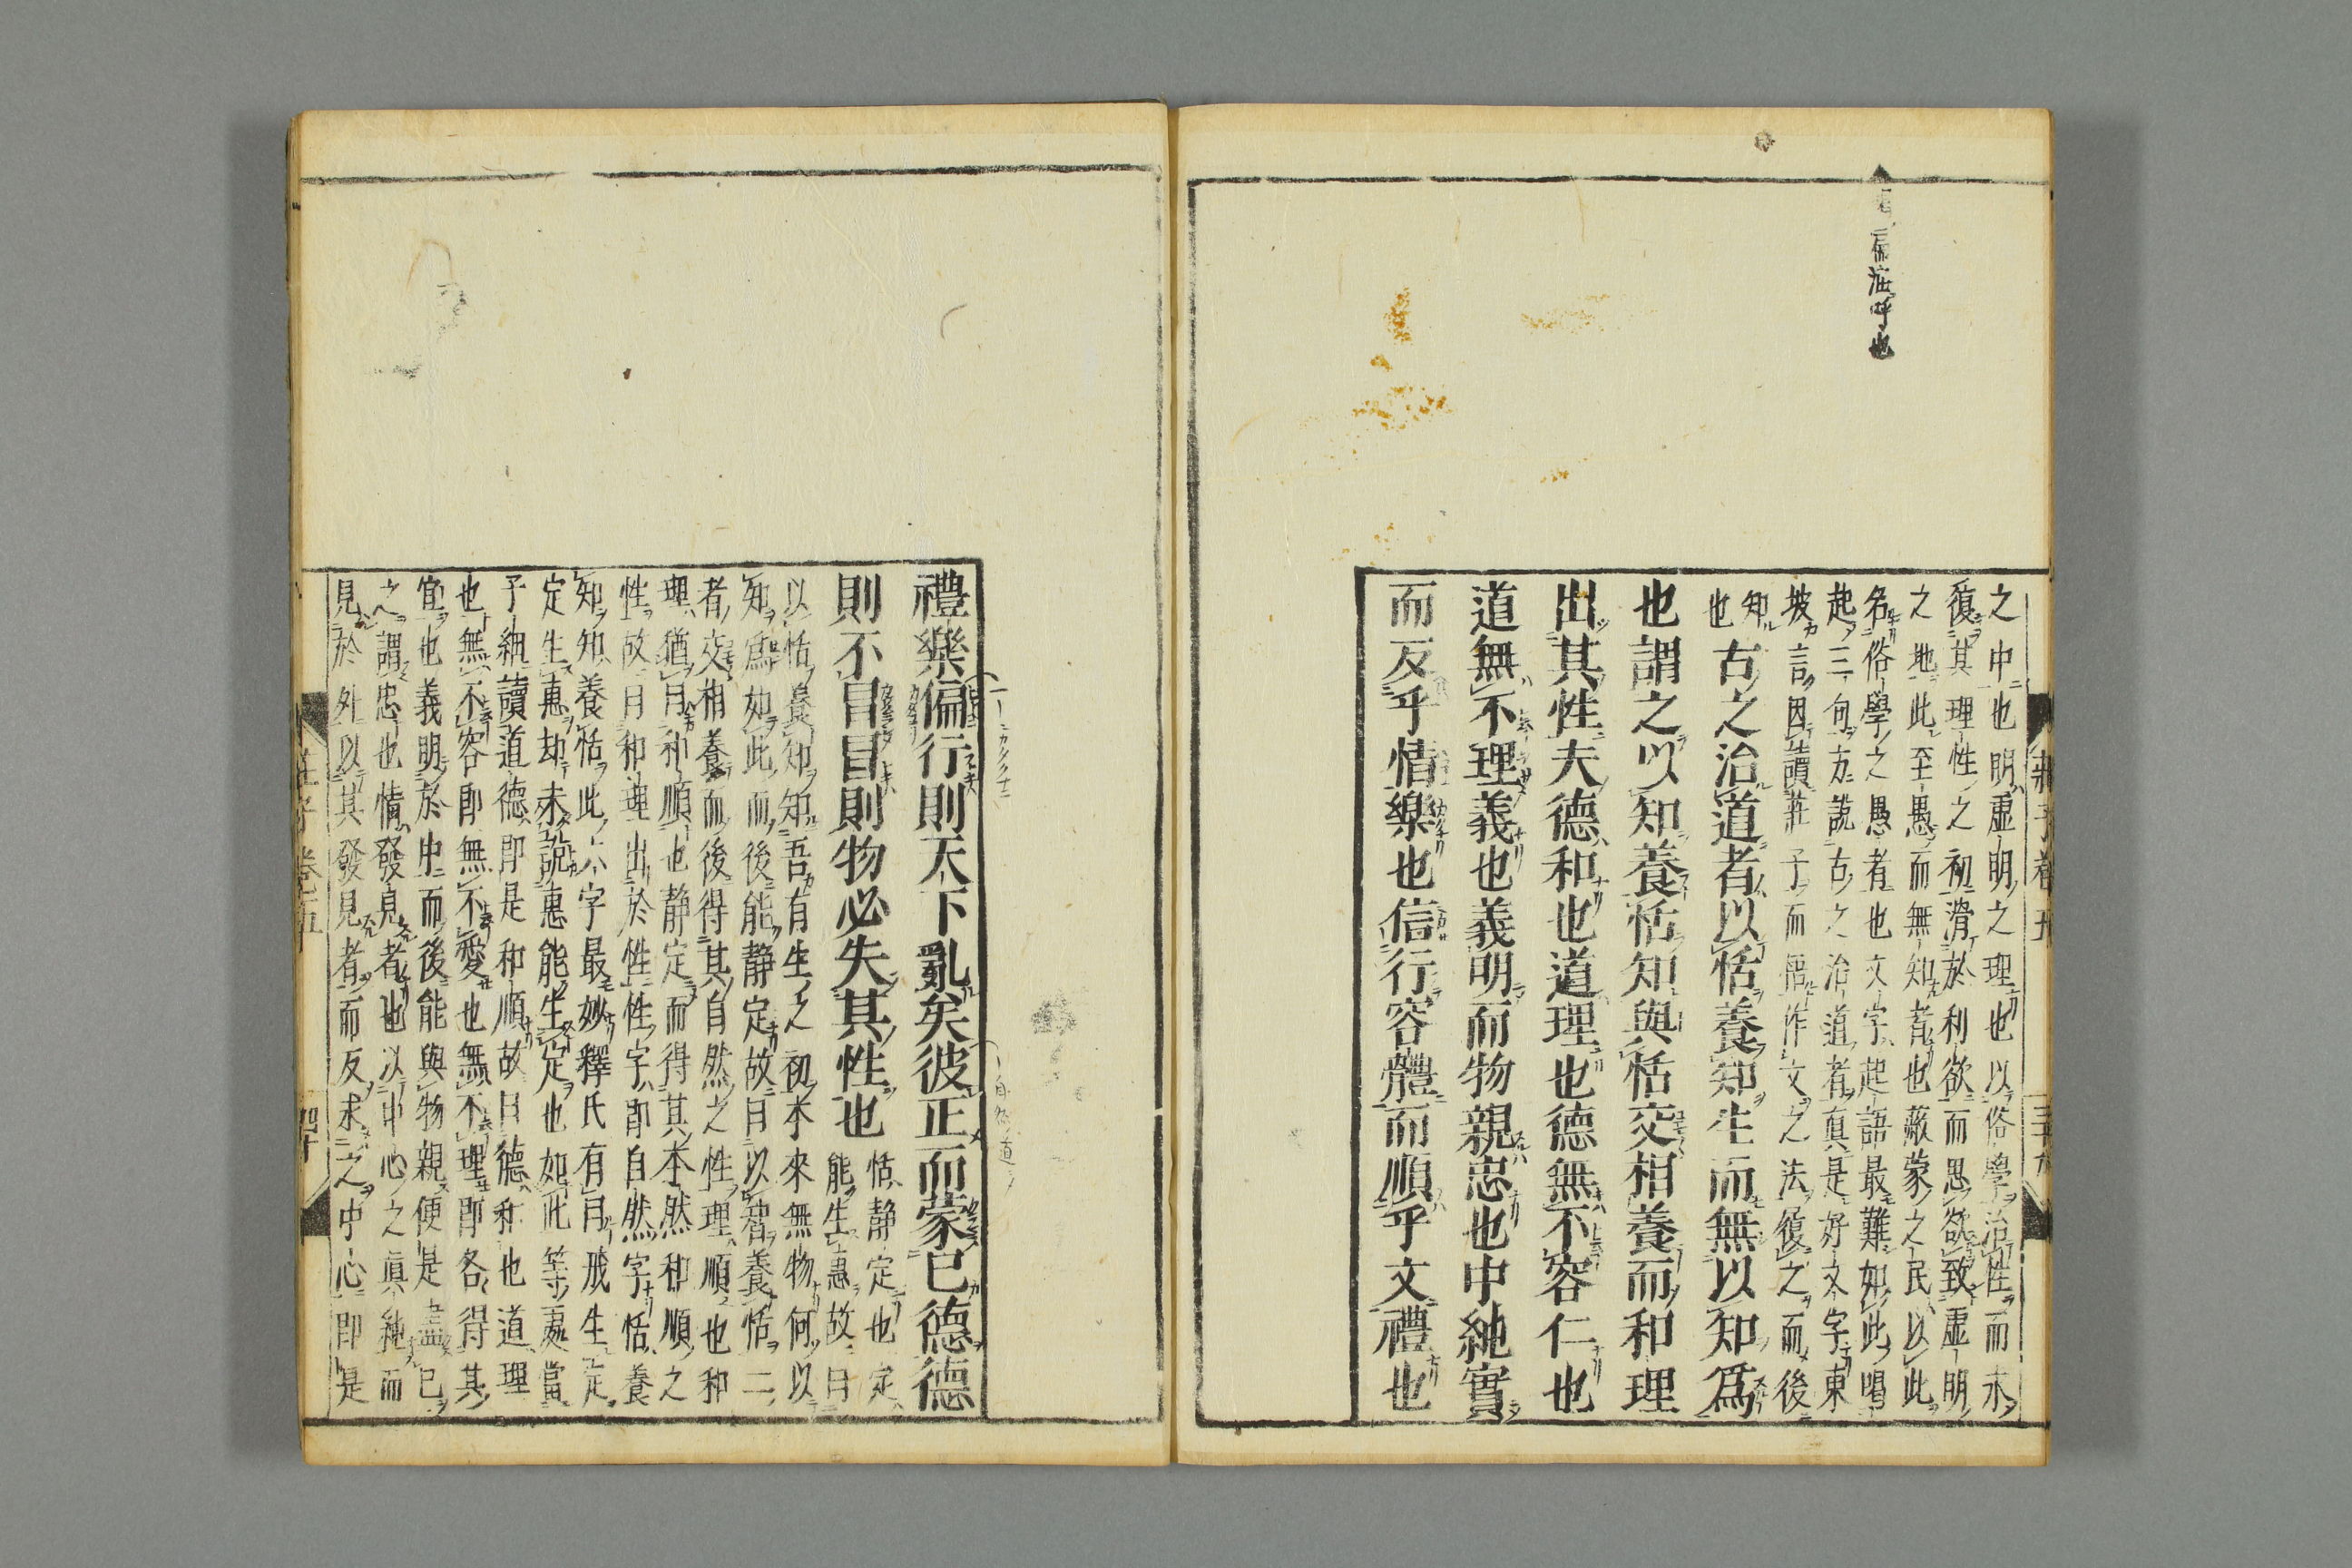 莊子卷五
三十九
之中也明虛明之理也以俗學治性而求
復其理性之初滑於利欲而思欲致虛明
之地此至愚而無知者也蔽蒙之民以此
名俗學之愚者也文字起語最難如此喝
起三句方說古之治道者真是好文字東
坡言因讀莊子而悟作文之法履之而後
知也
古之治道者以恬養知生而無以知爲
也謂之以知養恬知與恬交相養而和理
出其性夫德和也道理也德無不容仁也
道無不理義也義明而物親忠也中純實
而反乎情樂也信行容體而順乎文禮也
禮樂偏行則天下亂矣彼正而蒙己德德
則不冒冒則物必失其性也
恬靜定也定
能生惠故曰
以恬養知知吾有生之初本來無物何以
知爲如此而後能靜定故曰以智養恬二
者交相養而後得其自然之性理順也和
理猶曰和順也靜定而得其本然和順之
性故曰和理出於性性字即自然字恬養
知知養恬此六字最妙釋氏有曰戒生定
定生惠却未說惠能生定也如此等處當
子細讀道德即是和順故曰德和也道理
也無不容即無不愛也無不理即各得其
宜也義明於中而後能與物親便是盡己
之謂忠也情發見者也以中心之眞純而
見於外以其發見者而反求之中心即是
莊子卷五
四十